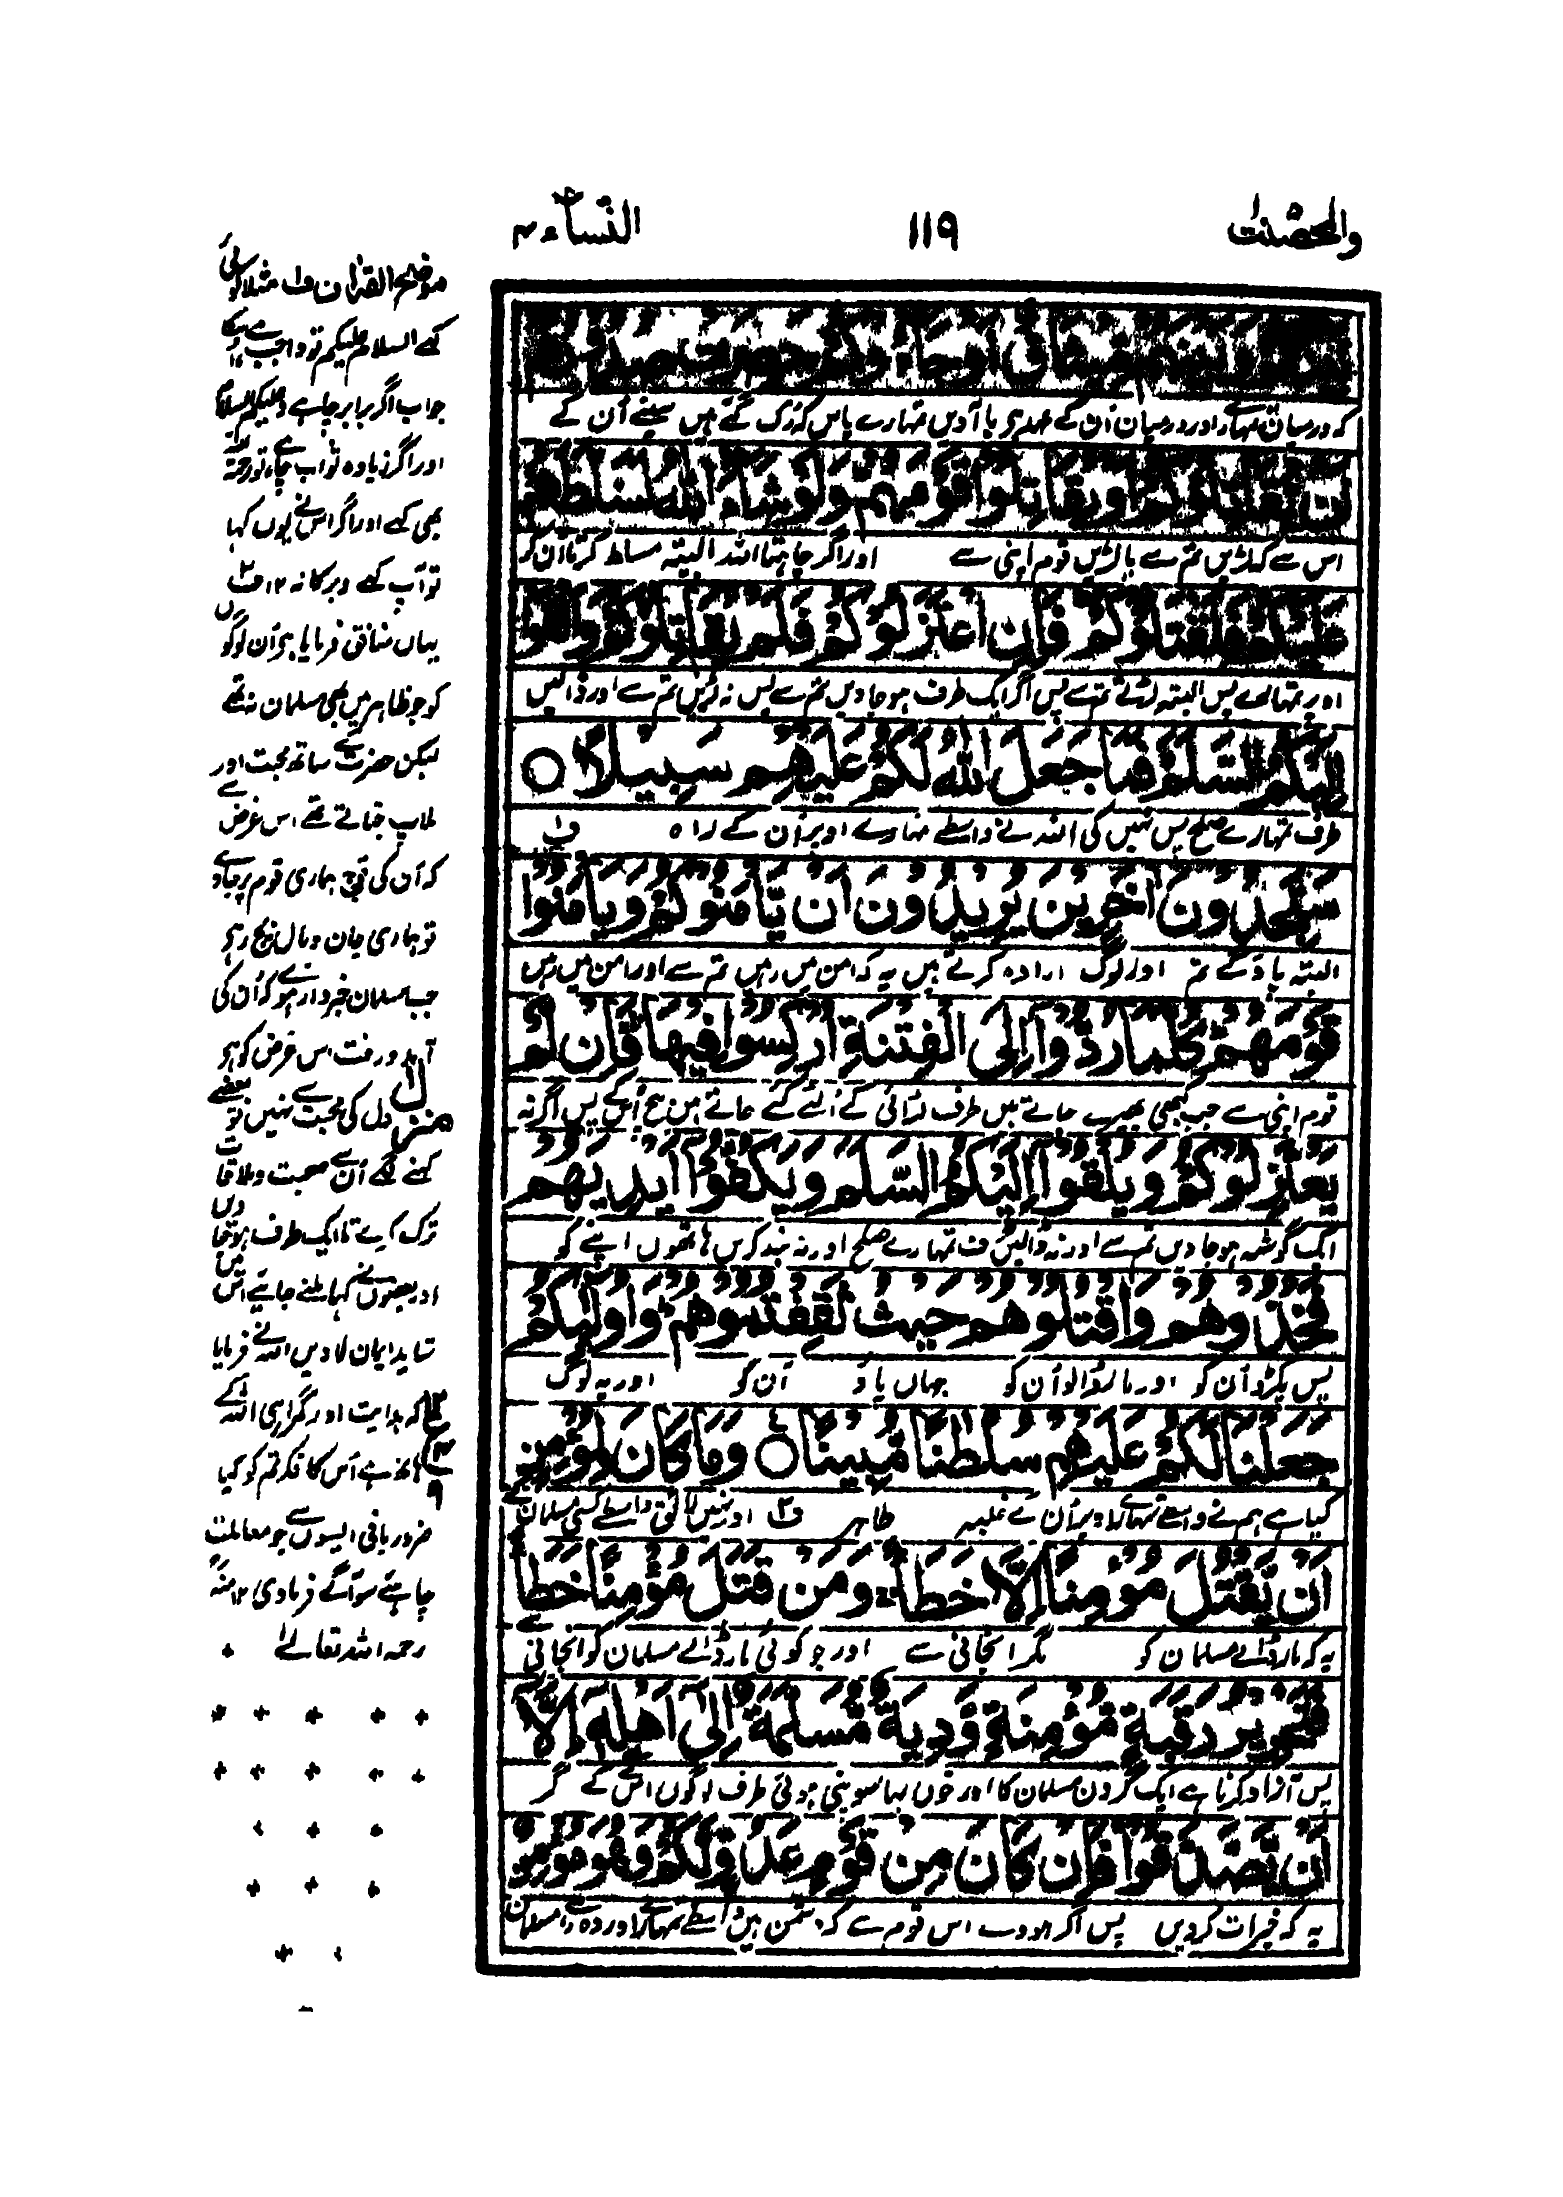 والمحصنت
١١٩
النساء ٤
بينكم وبينهم ميثاق او جاءوكم حصرت صدورهم
کہ درمیان تمہارے اور درمیان اُن کے عہد ہی یا آویں تمہارے پاس کہ رُک گئے ہیں سینے اُن کے
ان يقاتلوكم او يقاتلوا قومهم ولو شاء الله لسلطهم
اس سے کہ لڑیں تم سے یا لڑیں قوم اپنی سے اور اگر چاہتا اللہ البتہ مسلط کرتا اُن کو
عليكم فلقتلوكم فان اعتزلوكم فلم يقاتلوكم والقوا
اوپر تمہارے پس البتہ لڑتے تم سے پس اگر ایک طرف ہو جاویں تم سے پس نہ لڑیں تم سے اور ڈالیں
اليكم السلم فما جعل الله لكم عليهم سبيلا ○
طرف تمہارے صلح پس نہیں کی اللہ نے واسطے تمہارے اوپر اُن کے راہ ف۱
ستجدون اخرين يريدون ان يامنوكم ويامنوا
البتہ پاؤ گے تم اور لوگ ارادہ کرتے ہیں یہ کہ امن میں رہیں تم سے اور امن میں رہیں
قومهم كلما ردوا الى الفتنة اركسوا فيها فان لم
قوم اپنی سے جب کبھی پھیرے جاتے ہیں طرف لڑائی کے اُلٹے کئے جاتے ہیں بیچ اُس کے پس اگر نہ
يعتزلوكم ويلقوا اليكم السلم ويكفوا ايديهم
ایک گوشہ ہو جاویں تم سے اور نہ ڈالیں طرف تمہارے صلح اور نہ بند کریں ہاتھوں اپنے کو
فخذوهم واقتلوهم حيث ثقفتموهم واولئكم
پس پکڑو اُن کو اور مار ڈالو اُن کو جہاں پاؤ اُن کو اور یہ لوگ
جعلنا لكم عليهم سلطنا مبينا ○ وما كان لمؤمن
کیا ہے ہم نے واسطے تمہارے اوپر اُن کے غلبہ ظاہر ف۲ اور نہیں لائق واسطے کسی مسلمان کے
ان يقتل مؤمنا الا خطا ومن قتل مؤمنا خطا
یہ کہ مار ڈالے مسلمان کو مگر انجانی سے اور جو کوئی مار ڈالے مسلمان کو انجانی سے
فتحرير رقبة مؤمنة ودية مسلمة الى اهله الا
پس آزاد کرنا ہے ایک گردن مسلمان کا اور خوں بہا سونپی ہوئی طرف لوگوں اس کے مگر
ان يصدقوا فان كان من قوم عدو لكم وهو مؤمن
یہ کہ خیرات کردیں پس اگر ہووے اس قوم سے کہ دشمن ہیں واسطے تمہارے اور وہ ہے مسلمان
موضح القرآن ف۱ مثلا کوئی
کہے السلام علیکم تو واجب ہے اسکا
جواب اگر برابر چاہے وعلیکم السلام
اور اگر زیادہ ثواب چاہے تو رحمۃ اللہ
بھی کہے اور اگر اُس نے یوں کہا
تو آپ کہے وبرکاتہ ١٢ ف۲
یہاں منافق فرمایا ہی اُن لوگوں
کو جو ظاہر میں بھی مسلمان نہ تھے
لیکن حضرت کے ساتھ محبت اور
ملاپ جتاتے تھے اس غرض سے
کہ اُن کی فوج ہماری قوم پر جاوے
تو ہماری جان و مال بچ رہے
جب مسلمان خبردار ہوئے کہ اُن کی
آمد و رفت اس غرض کو ہی
دل کی محبت سے نہیں تو بعضے
منزل ١
کہنے لگے اُن سے صحبت و ملاقات
ترک کریے تا ایک طرف ہو جاویں
اور بعضوں نے کہا ملے جائیے اس میں
شاید ایمان لاویں اللہ نے فرمایا
کہ ہدایت اور گمراہی اللہ کے
ہاتھ ہے اُس کا فکر تم کو کیا
ع
٩
ضرور باقی ایسوں سے جو معاملت
چاہئے سو آگے فرمادی ١٢ منہ
رحمہ اللہ تعالےٰ